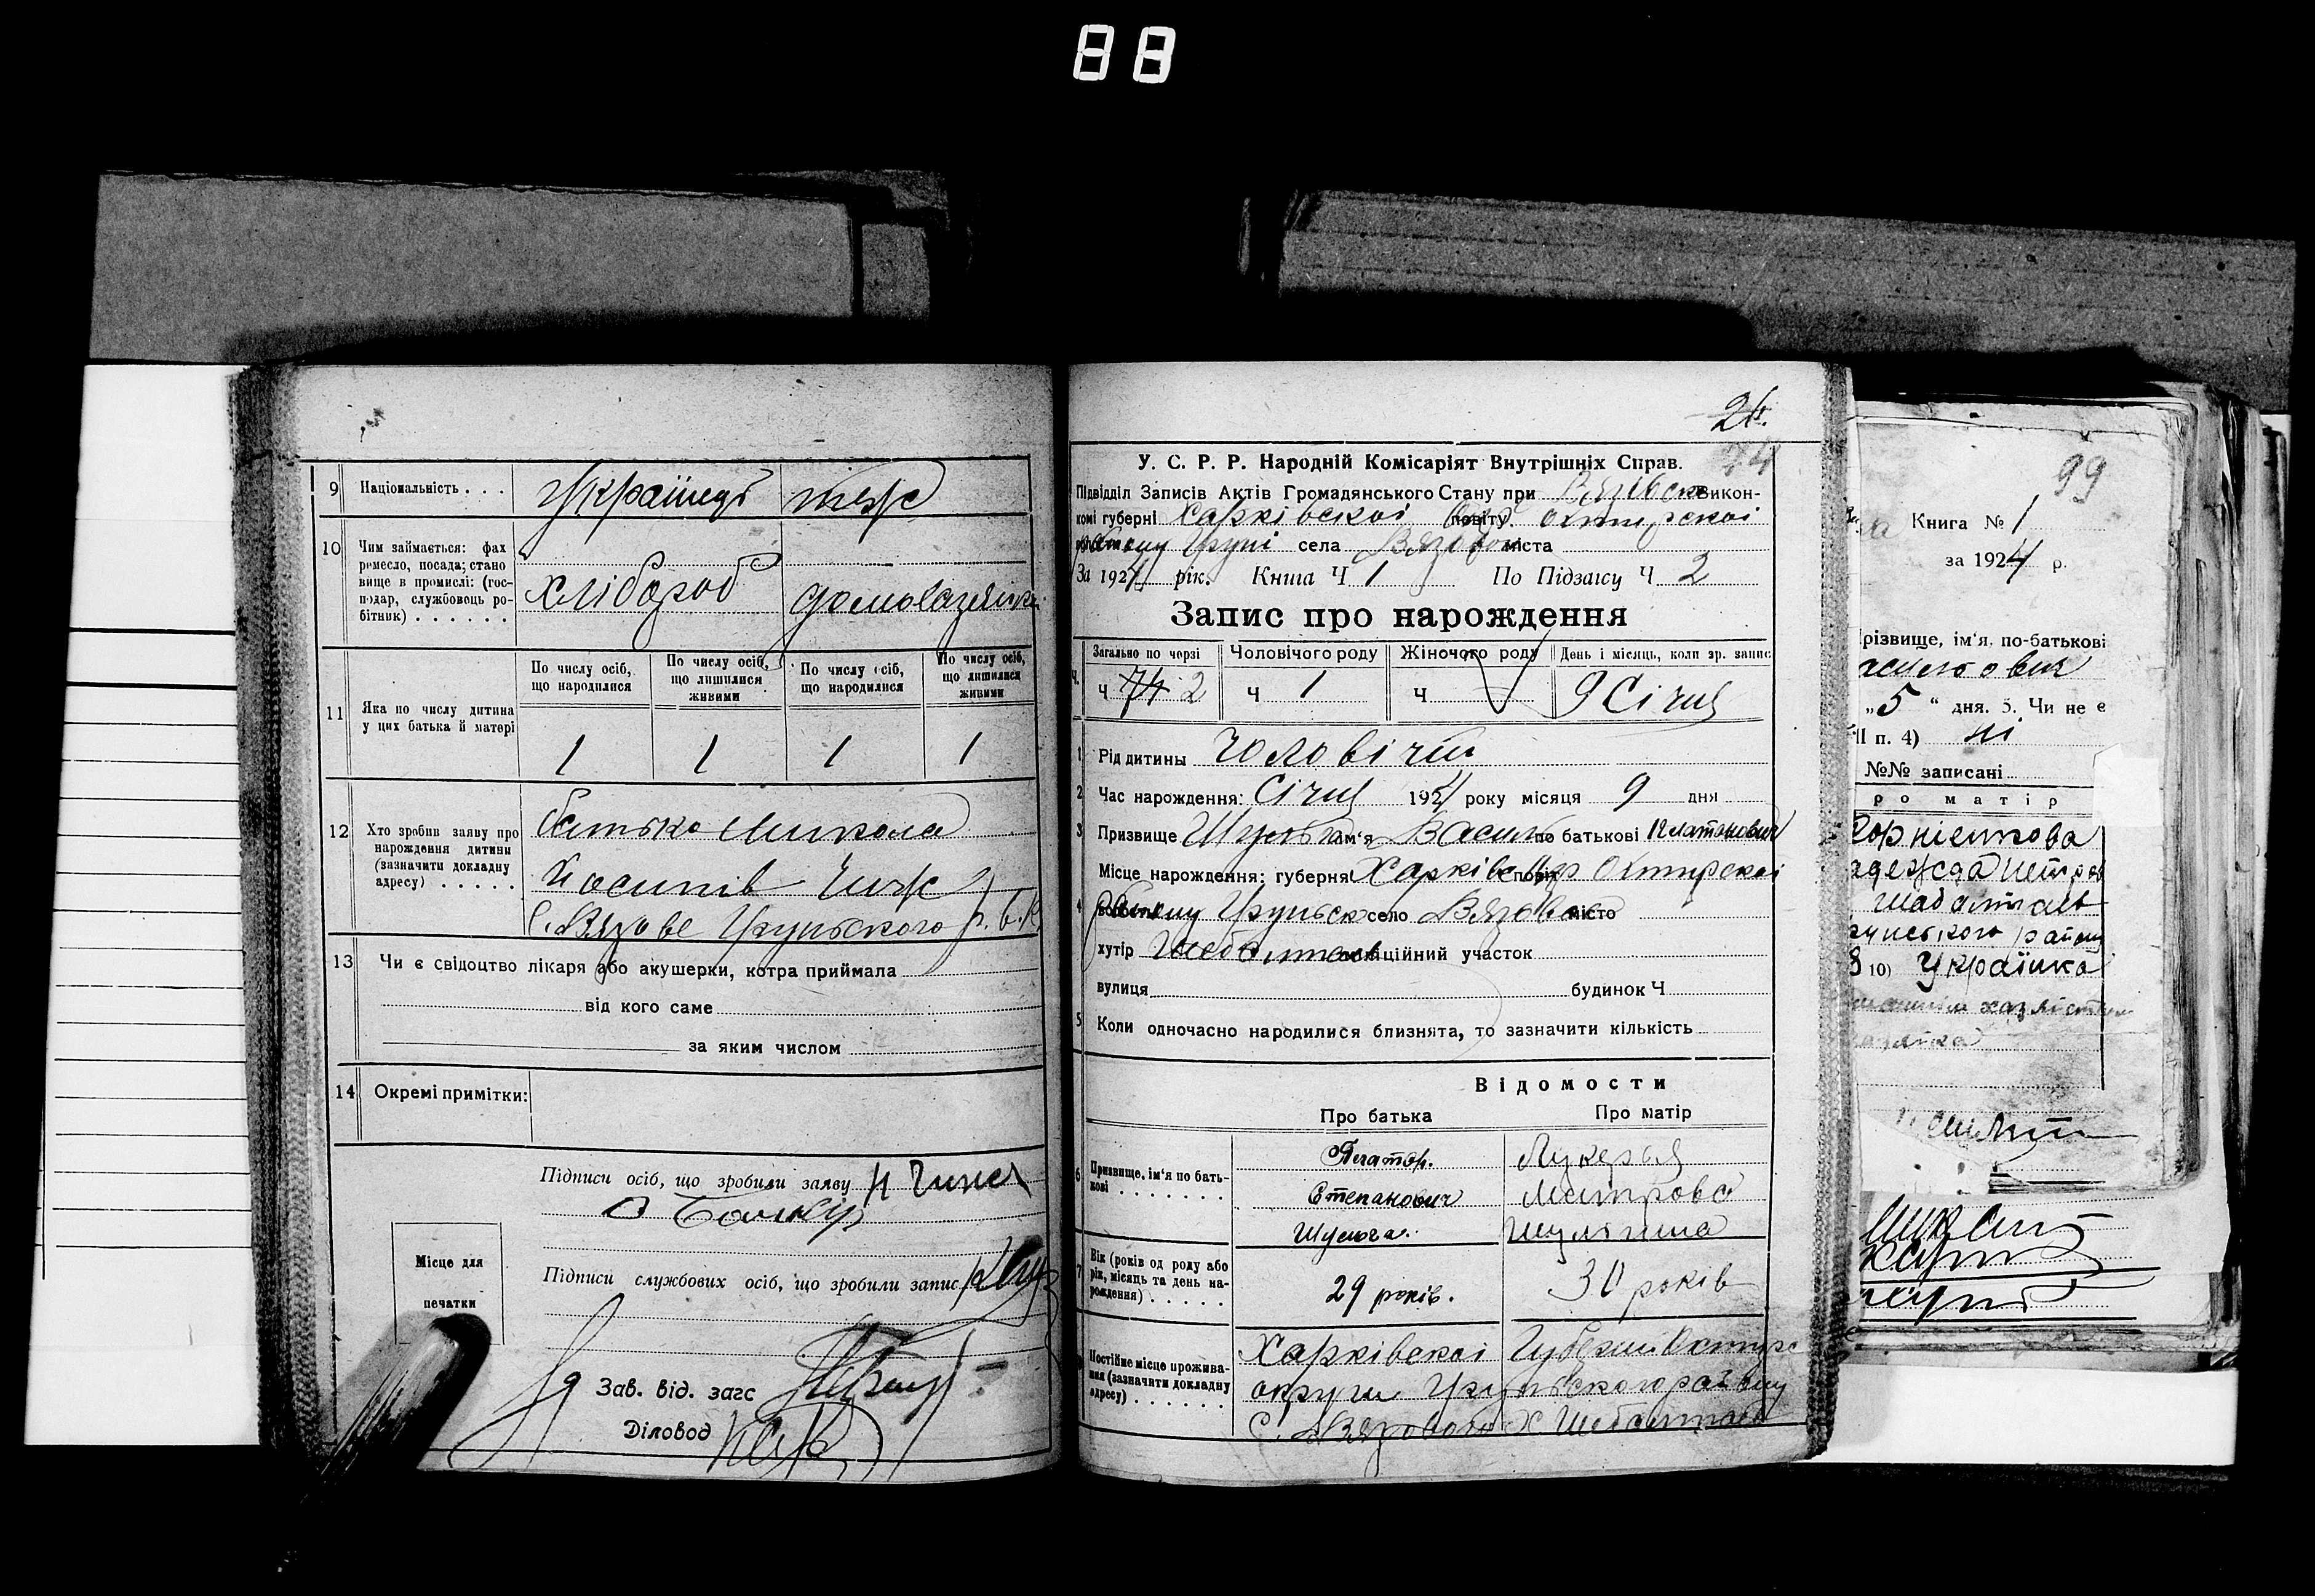 88
9 Національність . . .
Українець
теж
10 Чим займається: фах
ремесло, посада; стано
вище в промислі: (гос-
подар, службовець ро-
бітник) . . . . . .
хлібороб
домохазяйка
11 Яка по числу дитина
у цих батька й матері
По числу осіб,
що народилися
По числу осіб,
що лишилися
живими
По числу осіб,
що народилися
По числу осіб,
що лишилися
живими
1 1 1 1
12 Хто зробив заяву про
нарождення дитини
(зазначити докладну
адресу) . . . . .
батько Микола
Йосипів Чиж
С. Вязове Грунського р.в.к
13 Чи є свідоцтво лікаря або акушерки, котра приймала
від кого саме
за яким числом
14 Окремі примітки:
Підписи осіб, що зробили заяву
Підписи службових осіб, що зробили запис
Місце для
печатки
Зав. від. загс
Діловод
74
У. С. Р. Р. Народній Комісаріят Внутрішніх Справ.
Підвідділ Записів Актів Громадянського Стану при Вязівськ викон-
комі губерні Харківскої повіту Окр Охтирскої
району Груні села Вязового міста
За 1924 рік. Книга Ч 1 По Підзагсу Ч 2
Запис про нарождення
Загально по черзі Чоловічого роду Жіночого роду День і місяць, коли зр. запис
Ч 74 2 Ч 1 Ч 9 Січня
1 Рід дитины Чоловічий
2 Час нарождення: Січня 1924 року місяця 9 дня
3 Призвище Шульга ім'я Василь по батькові Платонович
4 Місце нарождення: губерня Харківс повіт Окр Охтирскої
району Груньск село Вязове місто
хутір Шебалтаєв поліційний участок
вулиця будинок Ч
5 Коли одночасно народилися близнята, то зазначити кількість
Відомости
Про батька Про матір
6 Призвище, ім'я по бать-
кові . . . . . . .
Платон.
Степанович
Шульга.
Лукерья
Митрова
Шульгина
7 Вік (років од роду або
рік, місяць та день на-
рождення) . . . . .
29 років.
30 років
Постійне місце прожива-
ня (зазначити докладну
адресу) . . . . . .
Харківскої Губернії Охтирс
округи Груньского району
С. Вязового Х Шебалтаєв
99
Книга № 1
за 1924 р.
різвище, ім'я. по-батькові
„5“ дня. 5. Чи не є
II п. 4) ні
№№ записані
ро матір
Корніенкова
адежда Петров
Шабалтаєв
унського району
10) Українка